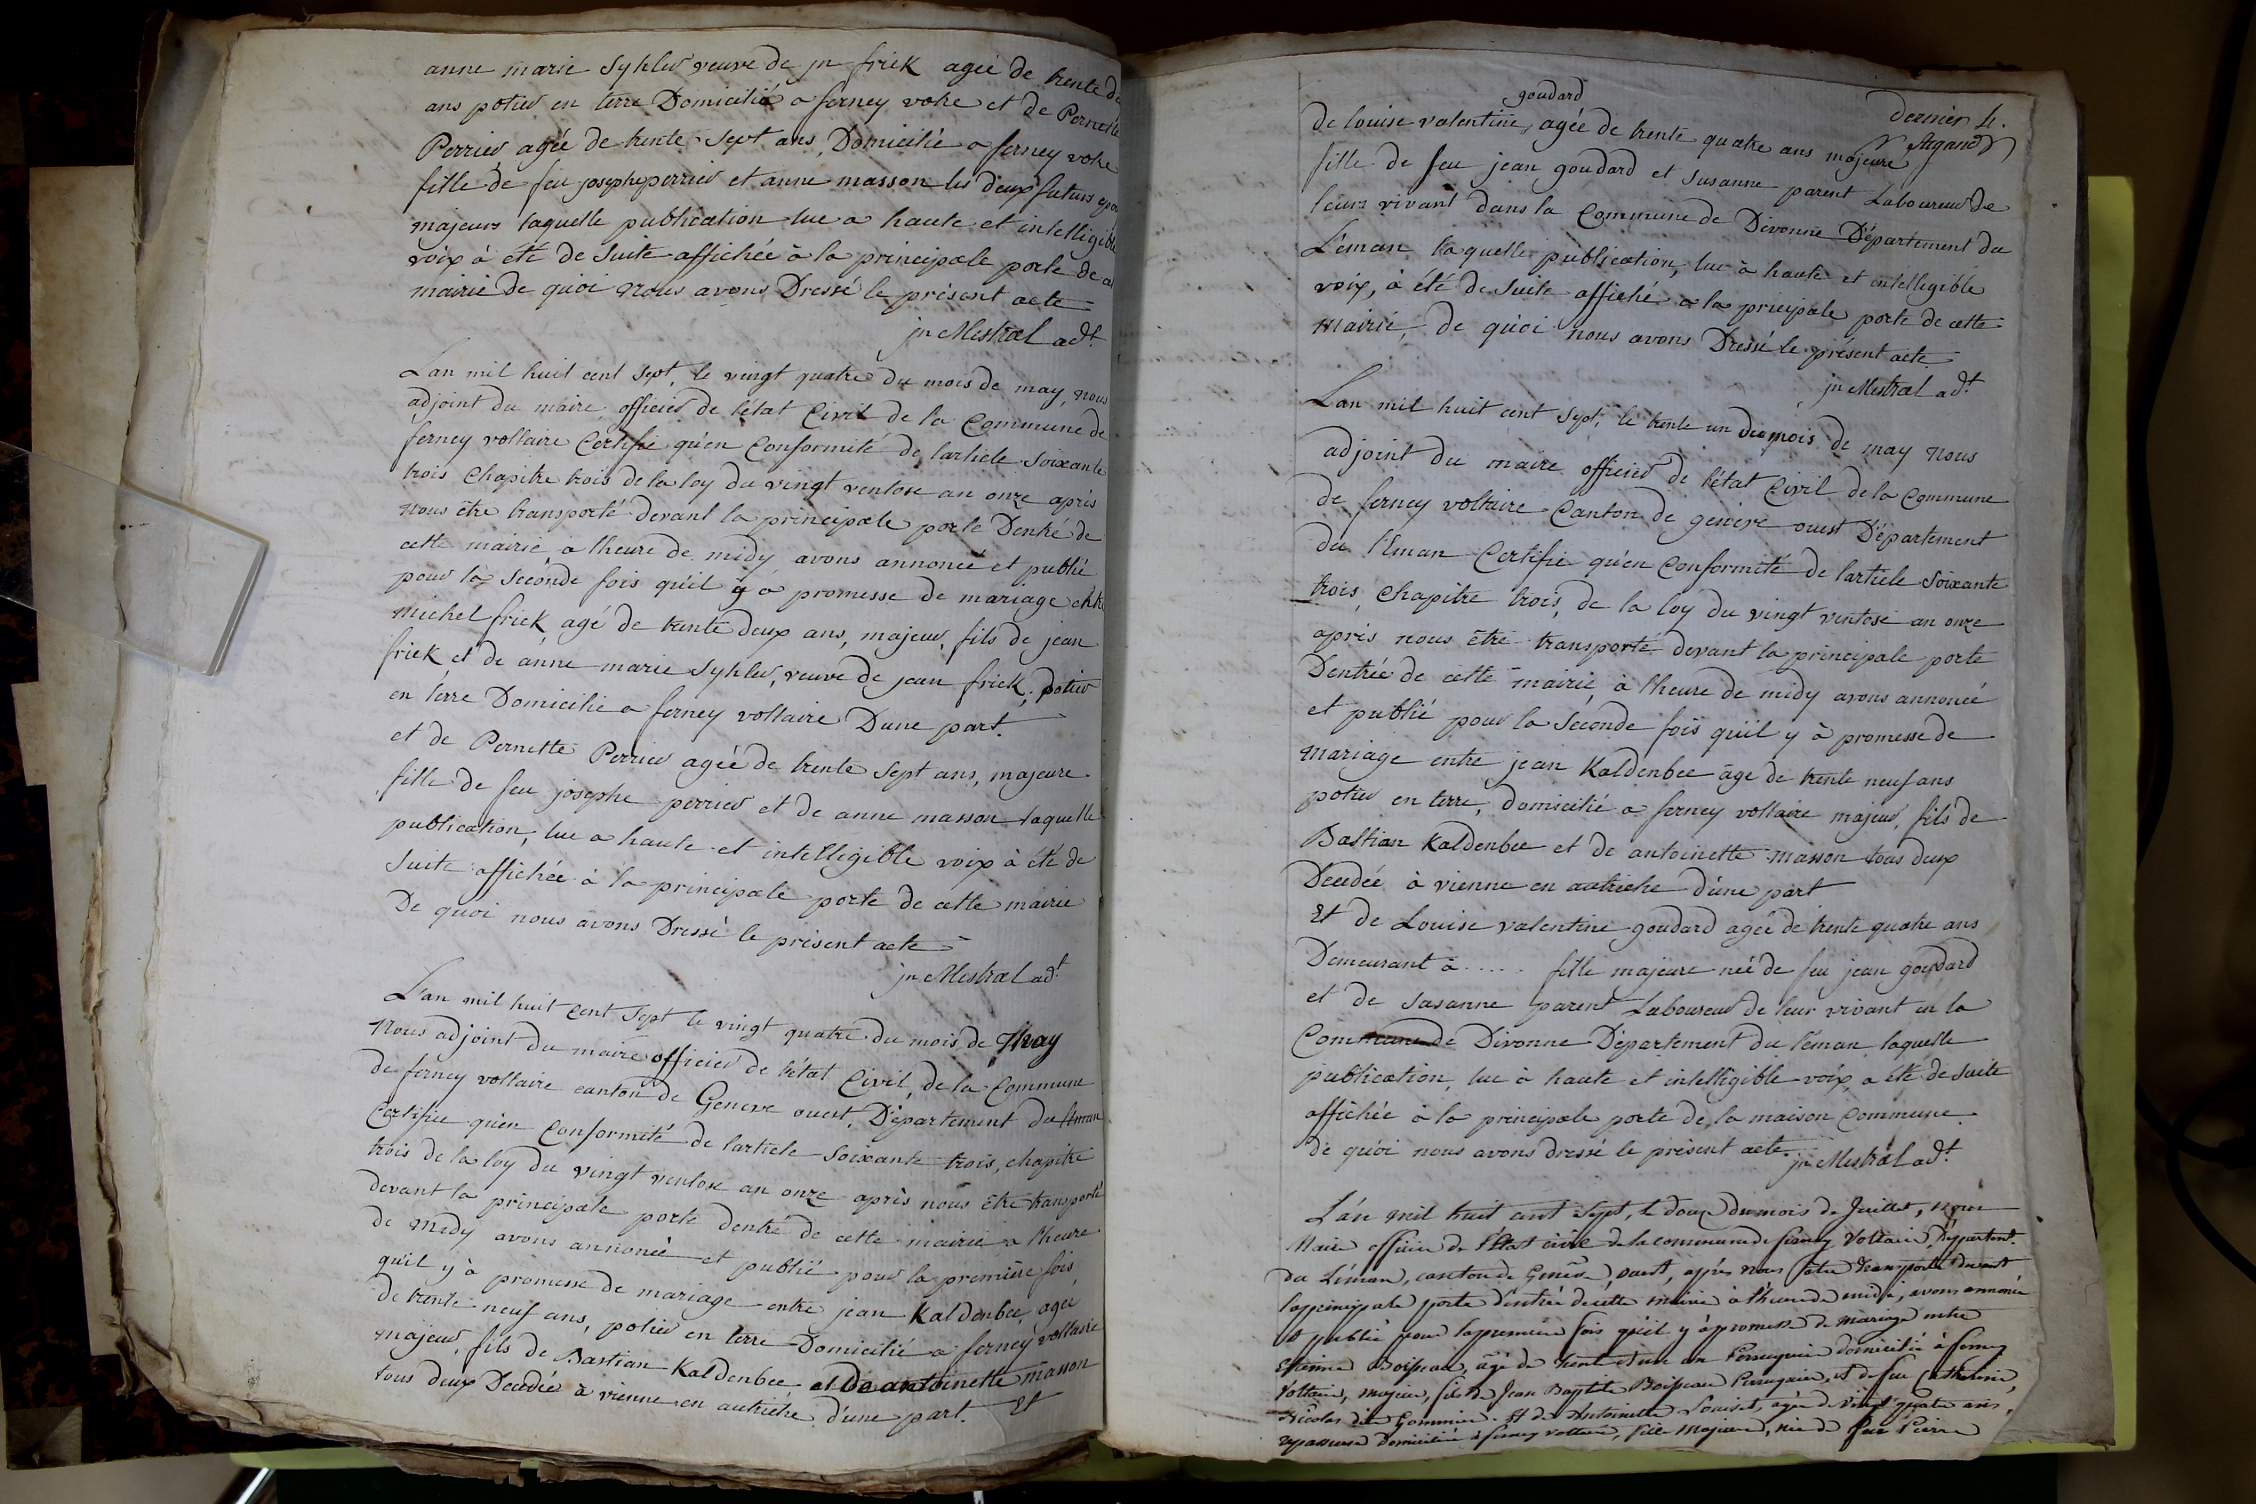 anne marie Syhler veuve de jn friek agée de trente de
ans potier en terre Domicilié a ferney votre et de Pernette
Perrier agée de trente sept ans, Domicilié a ferney votre
fille de feu josephe perrier et anne masson les deux futurs epo
majeurs laquelle publication lue a haute et intelligible
voix à été de suite affichée à la principale porte de
mairie de quoi nous avons Dressé le présent acte
jn Mestral adt.
L'an mil huit cent sept, le vingt quatre du mois de may, nous
adjoint du maire officier de l'état Civil de la Commune de
ferney voltaire Certifie qu'en Conformité de l'article soixante
trois Chapitre trois de la loy du vingt ventose an onze après
nous être transporté devant la principale porte Dentré de
cette mairie, a l'heure de midy avons annoncé et publié
pour la seconde fois qu'il y a promesse de mariage
michel friek agé de trente deux ans, majeur, fils de jean
friek et de anne marie Syhler, veuve de jean friek, potier
en terre Domicilié a ferney voltaire Dune part.
et de Pernette Perrier agée de trente sept ans, majeure
fille de feu josephe perrier et de anne masson laquelle
publication, lue a haute et intelligible voix à été de
suite affichée à la principale porte de cette mairie
De quoi nous avons Dressé le présent acte
jn Mestral adt
L'an mil huit cent sept le vingt quatre du mois de May
Nous adjoint du maire officier de l'état Civil, de la Commune
de ferney voltaire canton de Geneve ouest, Département du léman
Certifie qu'en Conformité de l'article soixante trois, chapitre
trois de la loy du vingt ventose an onze après nous être transporté
devant la principale porte dentré de cette mairie a l'heure
de midy avons annoncé et publié pour la première fois
qu'il y à promesse de mariage entre jean Kaldenbee, agée
de trente neuf ans, potier en terre Domicilié a ferney voltaire
majeur, fils de Bastian Kaldenbee et de antoinette masson
tous deux Decedée à vienne en autriche d'une part. Et
dernier 4.
goudard
de louise valentine, agée de trente quatre ans majeure
fille de feu jean goudard et susanne parent Laboureur de
leurs vivant dans la Commune de Divonne Département du
Léman laquelle publication, lue à haute et intelligible
voix, à été de suite affiché a la pricipale porte de cette
mairie, de quoi nous avons Dressé le présent acte
jn Mestral adt
L'an mil huit cent sept, le trente un du mois de may nous
adjoint du maire officier de l'état Civil de la Commune
de ferney voltaire Canton de genève ouest Département
du léman Certifie qu'en Conformité de l'article soixante
trois, Chapitre trois, de la loy du vingt ventose an onze
après nous être transporté devant la principale porte
Dentrée de cette mairie, à l'heure de midy avons annoncé
et publié pour la seconde fois qu'il y à promesse de
mariage entre jean Kaldenbee âgé de trente neuf ans
potier en terre, domicilié a ferney voltaire majeur, fils de
Bastian Kaldenbee et de antoinette masson tous deux
Decedée à vienne en autriche d'une part
Et de Louise valentine goudard agée de trente quatre ans
Demeurant à ..... fille majeure née de feu jean goudard
et de susanne parent Laboureur de leur vivant en la
Commune de Divonne Département du léman laquelle
publication, lue à haute et intelligible voix, a été de suite
affichée à la principale porte de la maison Commune
de quoi nous avons dressé le présent acte.
jn Mestral adt.
L'an mil huit cent sept, le douze du mois de Juillet, nous
Maire officier de l'État civil de la commune de ferney Voltaire, Départemt.
du Léman, canton de Genève, ouest, après nous être transporté devant
la principale porte d'entrée de cette mairie à l'heure de midi, avons annoncé
& publié pour la premiere fois qu'il y à promesse de mariage entre
Etienne Boispeau, âgé de trente et un an Perruquier domicilié à ferney
Voltaire, majeur, fils de Jean Baptiste Boispeau Perruquier, et de feu Catherine,
Nicolas dite Gommier. Et de Antoinette Louiset, agée de vingt quatre ans,
repasseuse Domiciliée à ferney voltaire, fille majeure, née de feu Pierre